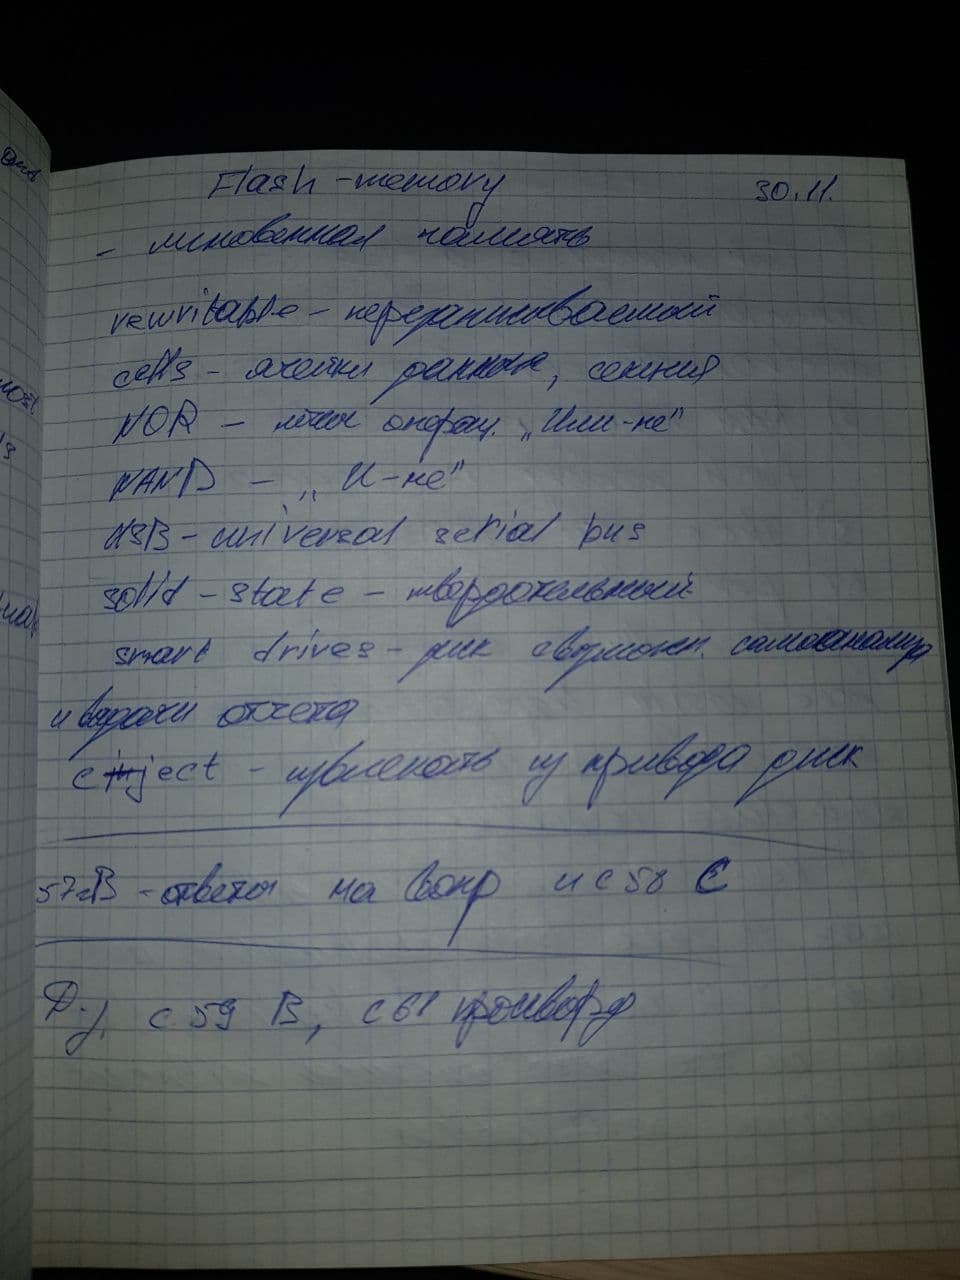 Flash-memory 30.11.
- мгновенная память
rewritable - перезаписываемый
cells - ячейки данных, секция
NOR - операц. „Или-не"
NAND - „И-не"
USB - universal serial bus
solid-state - твердотельный
smart drives - диск с возможн. самоанализа
и выдачи отчета
eject - извлекать из привода диск
57 B - ответы на вопр и с 58 C
Д.з. с 59 B, с 61 кроссворд